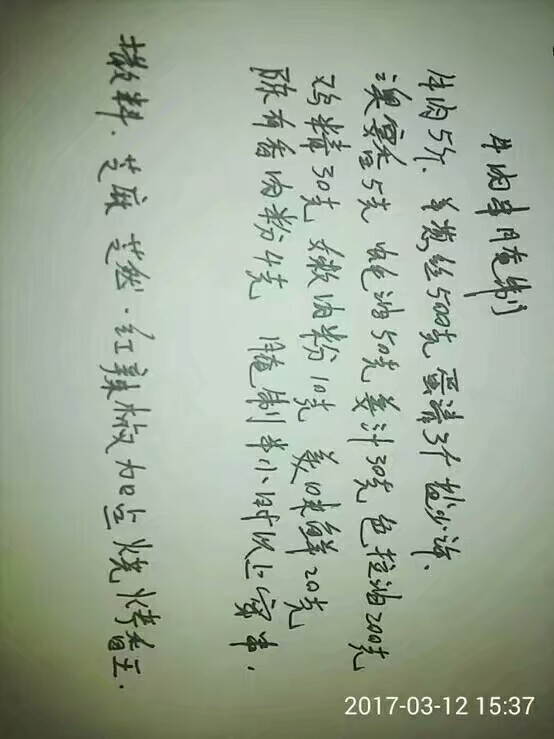 牛肉串腌制
牛肉5斤、羊葱丝500克 蛋清3个 盐少许、
澳宝红5克 蚝油50克 姜汁30克 色拉油200克
鸡精30克 嫩肉粉10克 美味鲜20克
陈有香肉粉4克 腌制半小时以上穿串,
撒料、芝麻 芝然·红辣椒 加 烧烤
2017-03-12 15:37